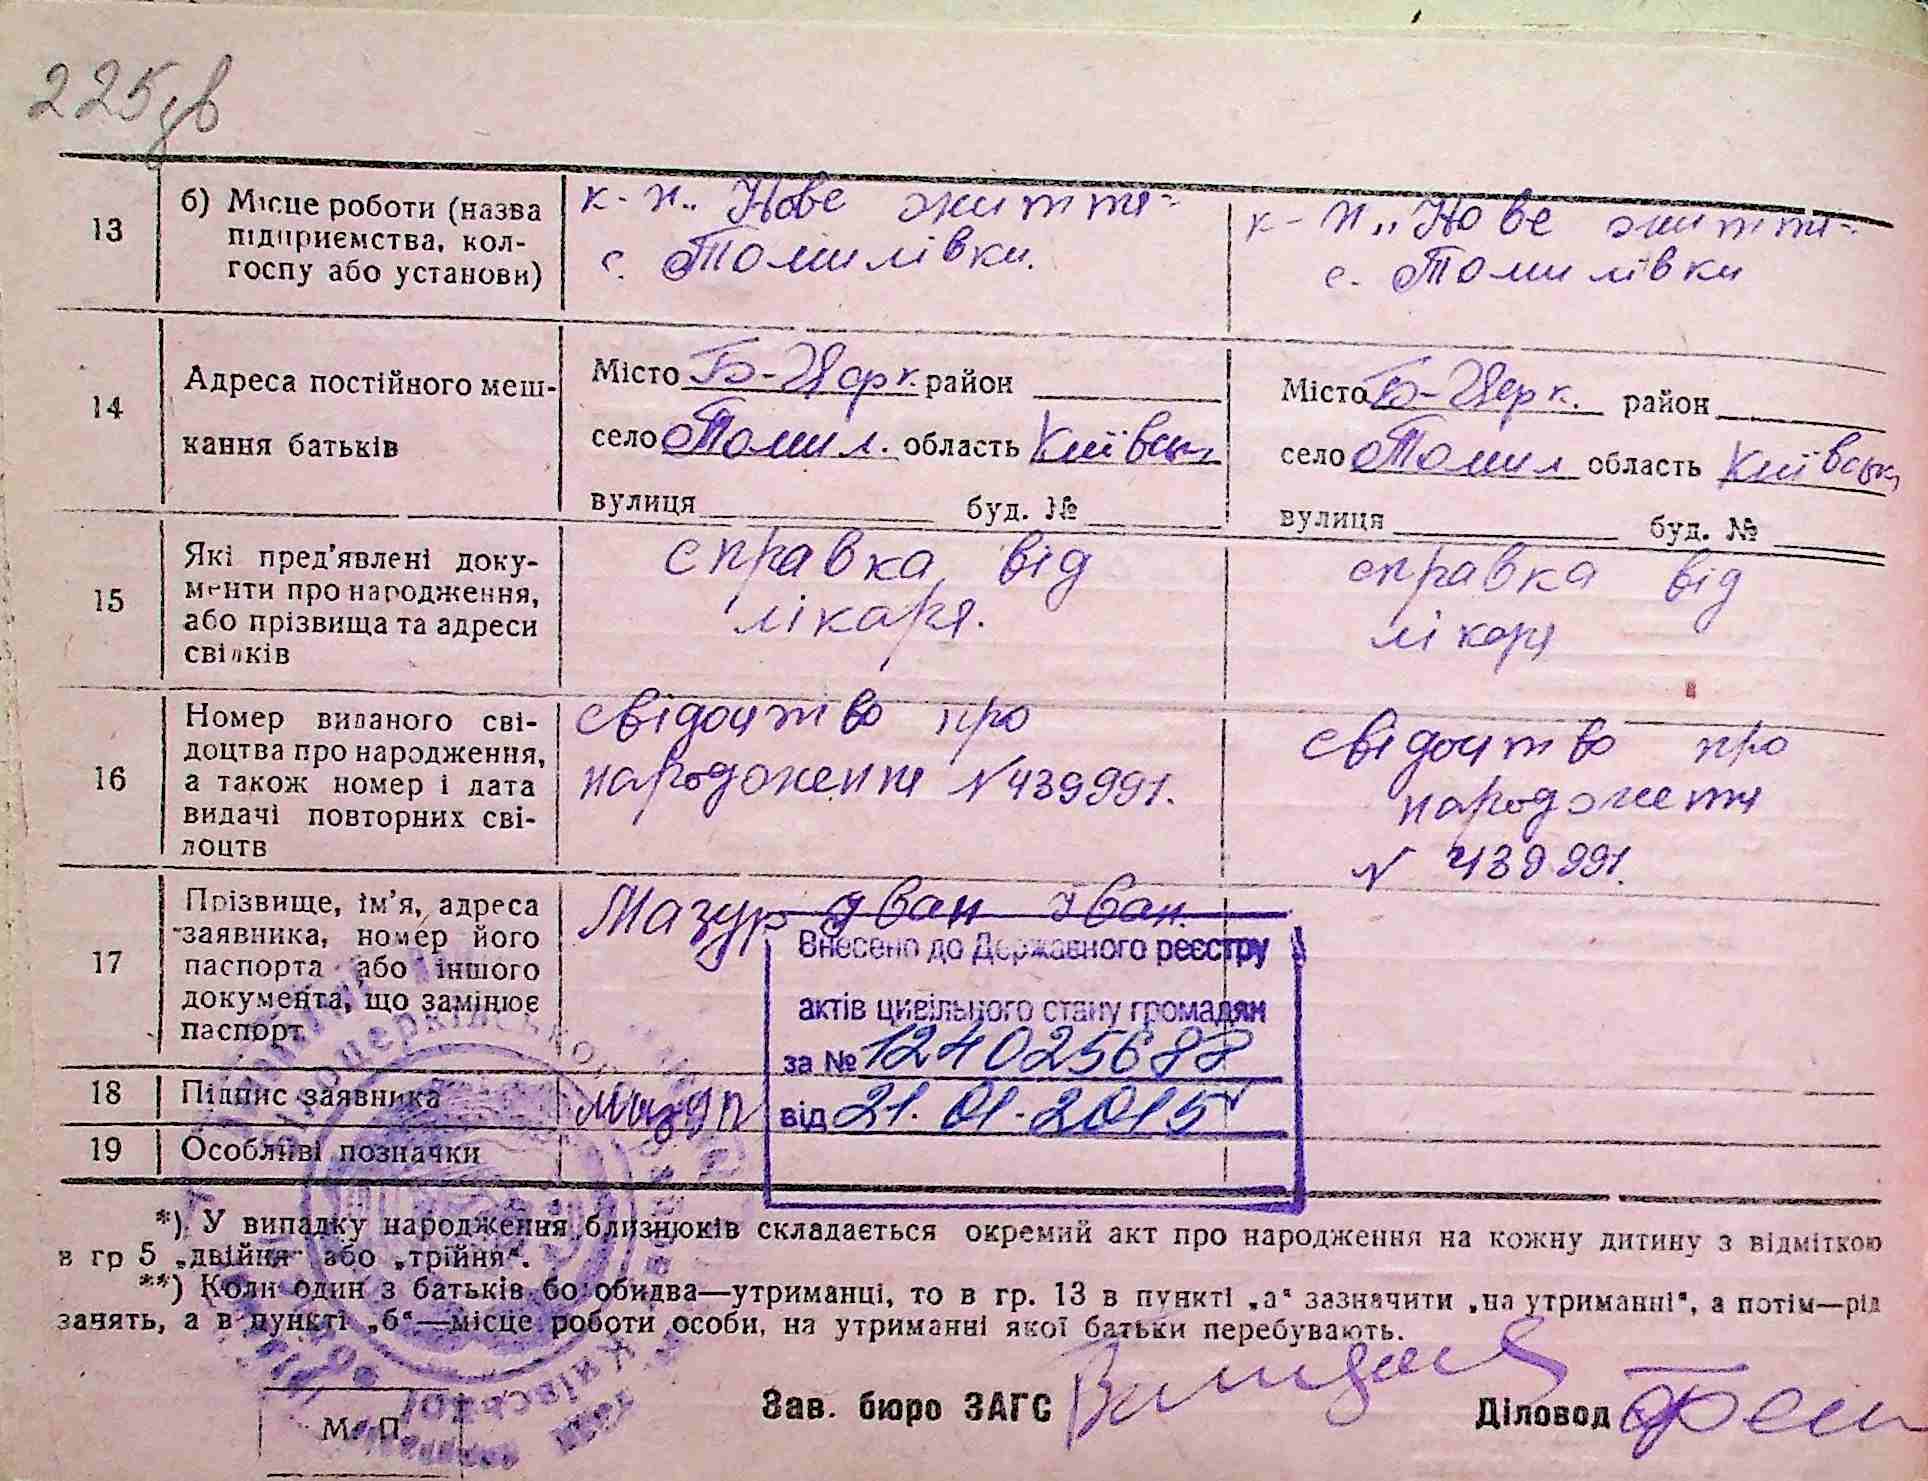 225зв
13 б) Місце роботи (назва підприємства, кол-госпу або установи)
к-п. „Нове життя"
с. Томилівки.
к-п „Нове життя"
с. Томилівки
14 Адреса постійного меш-
кання батьків
Місто Б-Церк. район
село Томил. область Київськ.
вулиця буд. №
Місто Б-Церк. район
село Томил область Київськ.
вулиця буд. №
15 Які пред'явлені доку-
менти про народження,
або прізвища та адреси
свідків
справка від
лікаря.
справка від
лікаря
16 Номер виданого сві-
доцтва про народження,
а також номер і дата
видачі повторних сві-
доцтв
свідоцтво про
народження № 439991.
свідоцтво про
народження
№ 439991.
17 Прізвище, ім'я, адреса
заявника, номер його
паспорта або іншого
документа, що замінює
паспорт
Мазур Іван Іван.
Внесено до Державного реєстру
актів цивільного стану громадян
за № 1240256
від 21.01.2015
18 Підпис заявника
Мазур
19 Особливі позначки
*) У випадку народження близнюків складається окремий акт про народження на кожну дитину з відміткою
в гр 5 „двійня" або „трійня".
**) Коли один з батьків бо обидва—утриманці, то в гр. 13 в пункті „а" зазначити „на утриманні", а потім—рід
занять, а в пункті „б"—місце роботи особи, на утриманні якої батьки перебувають.
М. П.
Зав. бюро ЗАГС
Діловод